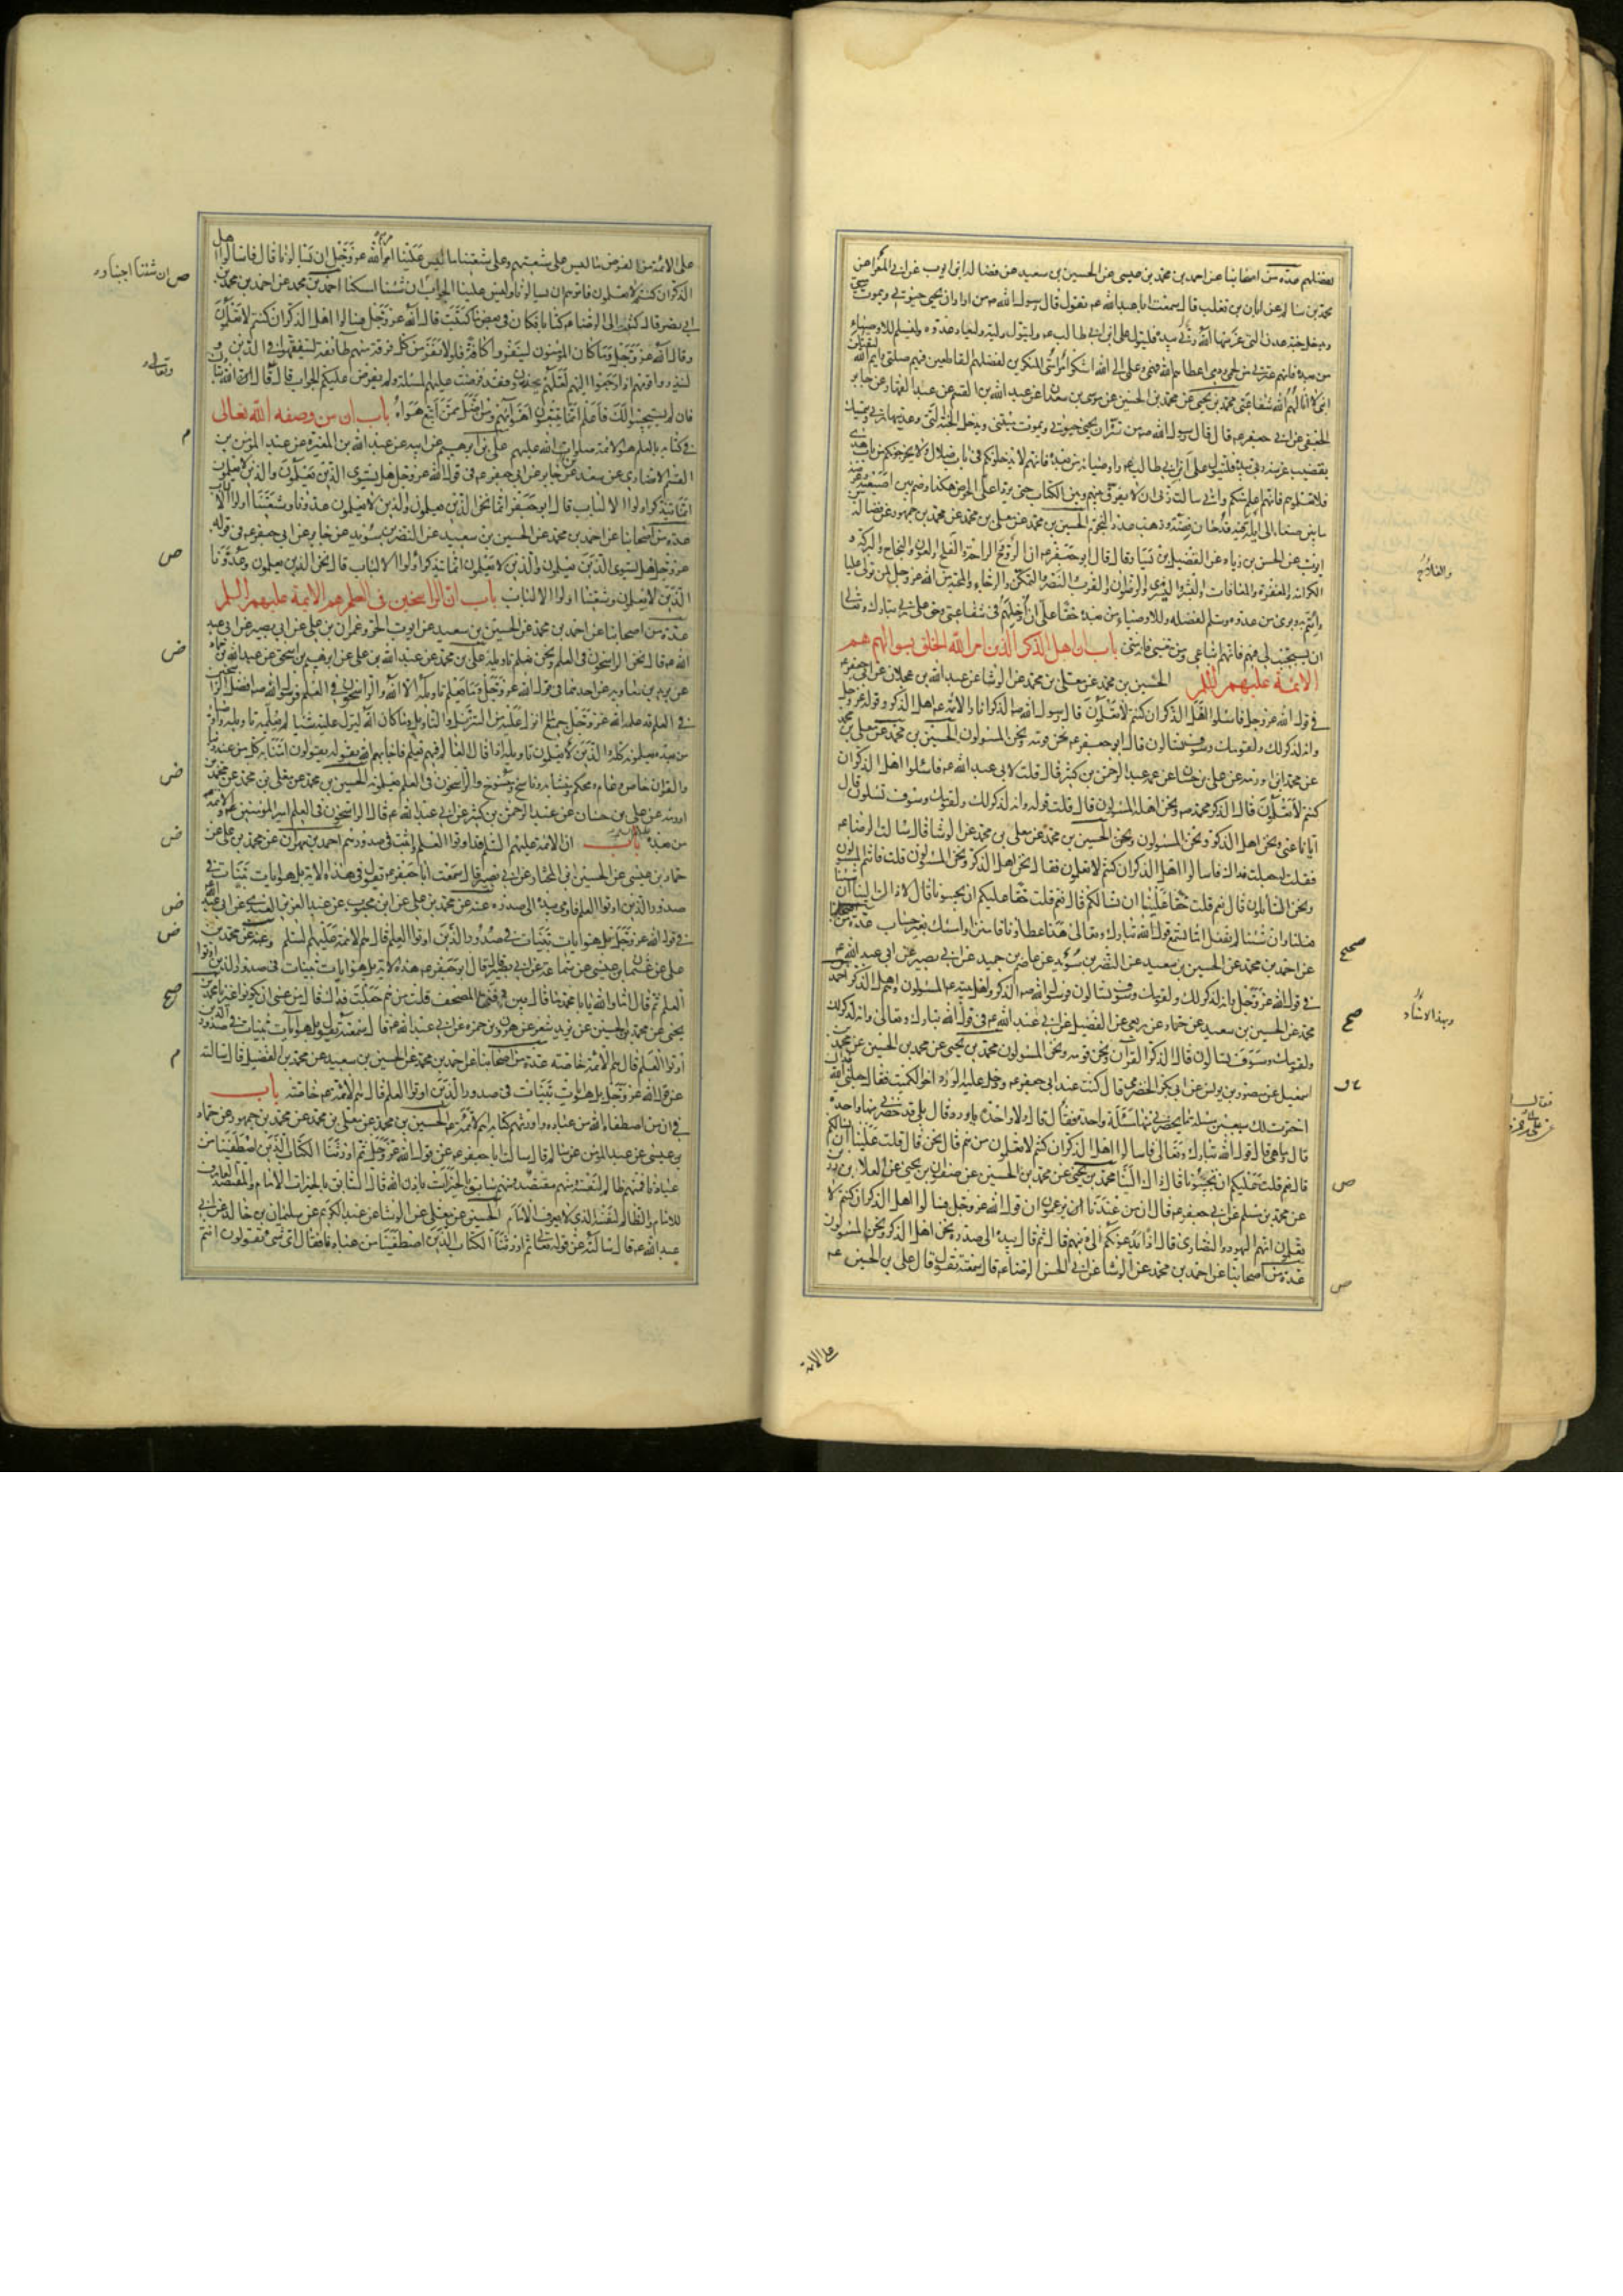 لفضلهم عدة من اصحابنا عن احمد بن محمد بن عيسى عن الحسين بن سعيد عن فضالة بن ايوب عن ابي المغرا عن
محمد بن سالم عن ابان بن تغلب قال سمعت ابا عبد الله ع يقول قال رسول الله ص من اراد ان يحيى حيوتي ويموت ميتتي
ويدخل جنة عدن التي غرسها الله ربي بيده فليتول علي بن ابي طالب ع وليتول وليه وليعاد عدوه وليسلم للاوصياء
من بعده فانهم عترتي من لحمي ودمي اعطاهم الله فهمي وعلمي الى الله اشكو امتي المنكرين لفضلهم القاطعين فيهم صلتي وايم الله ليقتلن
ابني لا انالهم الله شفاعتي محمد بن يحيى عن محمد بن الحسين عن موسى بن سعدان عن عبد الله بن القسم عن عبد القهار عن جابر
الجعفي عن ابي جعفر ع قال قال رسول الله ص من سره ان يحيى حيوتي ويموت ميتتي ويدخل الجنة التي وعدنيها ربي ويتمسك
بقضيب غرسه ربي بيده فليتول علي بن ابي طالب ع واوصيائه من بعده فانهم لا يدخلونكم في باب ضلال ولا يخرجونكم من باب هدى
فلا تعلموهم فانهم اعلم منكم واني سالت ربي ان لا يفرق بينهم وبين الكتاب حتى يردا على الحوض هكذا وضم بين اصبعيه وعرضه
ما بين صنعاء الى ايلة فيه قدحان فضة وذهب عدد النجوم الحسين بن محمد عن معلى بن محمد عن محمد بن جمهور عن فضالة
ايوب عن الحسن بن زياد عن الفضيل بن يسار قال قال ابو جعفر ع ان الروح والراحة والفلج والعون والنجاح والبركة و
الكرامة والمغفرة والمعافات واليسر والبشرى والرضوان والقرب والنصر والتمكن والرجاء والمحبة من الله عز وجل لمن تولى عليا
وائتم به وبرئ من عدوه وسلم لفضله وللاوصياء من بعده حقا علي ان ادخلهم في شفاعتي وحق على ربي تبارك وتعالى
ان يستجيب لي فيهم فانهم اتباعي ومن تبعني فانه مني باب ان اهل الذكر الذين امر الله الخلق بسوالهم هم
الائمة عليهم السلم الحسين بن محمد عن معلى بن محمد عن الوشا عن عبد الله بن عجلان عن ابي جعفر ع
في قول الله عز وجل فاسئلوا اهل الذكر ان كنتم لا تعلمون قال رسول الله ص الذكر انا والائمة ع اهل الذكر وقوله عز وجل
وانه لذكر لك ولقومك وسوف تسئلون قال ابو جعفر ع نحن قومه ونحن المسئولون الحسين بن محمد عن معلى بن محمد
عن محمد بن اورمه عن علي بن حسان عن عمه عبد الرحمن بن كثير قال قلت لابي عبد الله ع فاسئلوا اهل الذكر ان
كنتم لا تعلمون قال الذكر محمد ص ونحن اهله المسئولون قال قلت قوله وانه لذكر لك ولقومك وسوف تسئلون قال
ايانا عنى ونحن اهل الذكر ونحن المسئولون الحسين بن محمد عن معلى بن محمد عن الوشا قال سالت الرضا ع
فقلت له جعلت فداك فاسالوا اهل الذكر ان كنتم لا تعلمون فقال نحن اهل الذكر ونحن المسئولون قلت فانتم المسئولون
ونحن السائلون قال نعم قلت حقا علينا ان نسالكم قال نعم قلت حقا عليكم ان تجيبونا قال لا ذاك الينا ان شئنا
فعلنا وان شئنا لم نفعل اما تسمع قول الله تبارك وتعالى هذا عطاؤنا فامنن او امسك بغير حساب عدة من اصحابنا
عن احمد بن محمد عن الحسين بن سعيد عن النضر بن سويد عن عاصم بن حميد عن ابي بصير عن ابي عبد الله ع
في قول الله عز وجل وانه لذكر لك ولقومك وسوف تسئلون فرسول الله ص الذكر واهل بيته ع المسئولون وهم اهل الذكر احمد
محمد عن الحسين بن سعيد عن حماد عن ربعي عن الفضيل عن ابي عبد الله ع في قول الله تبارك وتعالى وانه لذكر لك
ولقومك وسوف تسالون قال الذكر القرآن ونحن قومه ونحن المسئولون محمد بن يحيى عن محمد بن الحسين عن محمد بن
اسمعيل عن منصور بن يونس عن ابي بكر الحضرمي قال كنت عند ابي جعفر ع ودخل عليه الورد اخو الكميت فقال جعلني الله فداك
اخترت لك سبعين مسئلة ما يحضرني منها مسئلة واحدة فقال ولا واحدة يا ورد قال بلى قد حضرني منها واحدة
قال وما هي قال قول الله تبارك وتعالى فاسالوا اهل الذكر ان كنتم لا تعلمون من هم قال نحن قال قلت علينا ان نسالكم
قال نعم قلت عليكم ان تجيبونا قال ذاك الينا محمد بن يحيى عن محمد بن الحسين عن صفوان بن يحيى عن العلا بن رزين
عن محمد بن مسلم عن ابي جعفر ع قال ان من عندنا يزعمون ان قول الله عز وجل فسالوا اهل الذكر ان كنتم لا
تعلمون انهم اليهود والنصارى قال اذا يدعونكم الى دينهم قال ثم قال بيده الى صدره نحن اهل الذكر ونحن المسئولون
عدة من اصحابنا عن احمد بن محمد عن الوشا عن ابي الحسن الرضا ع قال سمعته يقول قال علي بن الحسين ع
على الائمة
والفلاح
صحيح
صح
وبهذا الاسناد
ص
ص
على الائمة من الفرض ما ليس على شيعتهم وعلى شيعتنا ما ليس علينا امرهم الله عز وجل ان يسالونا قال فاسالوا اهل
الذكر ان كنتم لا تعلمون فامرهم ان يسالونا وليس علينا الجواب ان شئنا امسكنا احمد بن محمد عن احمد بن محمد بن
ابي نصر قال كتبت الى الرضا ع كتابا فكان في بعض ما كتبت قال الله عز وجل فسالوا اهل الذكر ان كنتم لا تعلمون
وقال الله عز وجل وما كان المؤمنون لينفروا كافة فلولا نفر من كل فرقة منهم طائفة ليتفقهوا في الدين و
لينذروا قومهم اذا رجعوا اليهم لعلهم يحذرون فقد فرضت عليهم المسئلة ولم يفرض عليكم الجواب قال قال الله تبارك
فان لم يستجيبوا لك فاعلم انما يتبعون اهوائهم ومن اضل ممن اتبع هواه باب ان من وصفه الله تعالى
في كتابه بالعلم هم الائمة صلوات الله عليهم علي بن ابرهيم عن ابيه عن عبد الله بن المغيرة عن عبد المؤمن بن
القسم الانصاري عن سعد عن جابر عن ابي جعفر ع في قول الله عز وجل هل يستوي الذين يعلمون والذين لا يعلمون
انما يتذكر اولوا الالباب قال ابو جعفر انما نحن الذين يعلمون والذين لا يعلمون عدونا وشيعتنا اولوا الالباب
عدة من اصحابنا عن احمد بن محمد عن الحسين بن سعيد عن النضر بن سويد عن جابر عن ابي جعفر ع في قوله
عز وجل هل يستوي الذين يعلمون والذين لا يعلمون انما يتذكر اولوا الالباب قال نحن الذين يعلمون وعدونا
الذين لا يعلمون وشيعتنا اولوا الالباب باب ان الراسخين في العلم هم الائمة عليهم السلم
عدة من اصحابنا عن احمد بن محمد عن الحسين بن سعيد عن ايوب بن الحر وعمران بن علي عن ابي بصير عن ابي عبد
الله ع قال نحن الراسخون في العلم ونحن نعلم تاويله علي بن محمد عن عبد الله بن علي عن ابرهيم بن اسحق عن عبد الله بن حماد
عن بريد بن معاوية عن احدهما في قول الله عز وجل وما يعلم تاويله الا الله والراسخون في العلم فرسول الله ص افضل الراسخين
في العلم قد علمه الله عز وجل جميع ما انزل عليه من التنزيل والتاويل وما كان الله لينزل عليه شيئا لم يعلمه تاويله واوصياؤه
من بعده يعلمونه كله والذين لا يعلمون تاويله اذا قال العالم فيهم بعلم فاجابهم الله بقوله يقولون امنا به كل من عند ربنا
والقران خاص وعام ومحكم ومتشابه وناسخ ومنسوخ والراسخون في العلم يعلمونه الحسين بن محمد عن معلى بن محمد عن محمد بن
اورمه عن علي بن حسان عن عبد الرحمن بن كثير عن ابي عبد الله ع قال الراسخون في العلم امير المؤمنين ع والائمة
من بعده باب ان الائمة عليهم السلم قد اوتوا العلم واثبت في صدورهم احمد بن مهران عن محمد بن علي عن
حماد بن عيسى عن الحسين بن المختار عن ابي بصير قال سمعت ابا جعفر ع يقول في هذه الاية بل هو ايات بينات في
صدور الذين اوتوا العلم فاومى بيده الى صدره عنه عن محمد بن علي عن ابن محبوب عن عبد العزيز العبدي عن ابي عبد الله
في قول الله عز وجل بل هو ايات بينات في صدور الذين اوتوا العلم قال هم الائمة عليهم السلم وعنه عن محمد بن
علي عن عثمان بن عيسى عن سماعة عن ابي بصير قال قال ابو جعفر ع هذه الاية بل هو ايات بينات في صدور الذين اوتوا
العلم ثم قال اما والله يا با محمد ما قال بين دفتي المصحف قلت من هم جعلت فداك قال من عسى ان يكونوا غيرنا محمد بن
يحيى عن محمد بن الحسين عن يزيد شعر عن هرون بن حمزه عن ابي عبد الله ع قال سمعته يقول بل هو آيات بينات في صدور الذين
اوتوا العلم قال هم الائمة خاصة عدة من اصحابنا عن احمد بن محمد عن الحسين بن سعيد عن محمد بن الفضيل قال سالته
عن قول الله عز وجل بل هو ايات بينات في صدور الذين اوتوا العلم قال هم الائمة ع خاصة باب
في ان من اصطفاه الله من عباده واورثهم كتابه هم الائمة ع الحسين بن محمد عن معلى بن محمد عن محمد بن جمهور عن حماد
بن عيسى عن عبد المؤمن عن سالم قال سالت ابا جعفر ع عن قول الله عز وجل ثم اورثنا الكتاب الذين اصطفينا من
عبادنا فمنهم ظالم لنفسه ومنهم مقتصد ومنهم سابق بالخيرات باذن الله قال السابق بالخيرات الامام والمقتصد العارف
للامام والظالم لنفسه الذي لا يعرف الامام الحسين عن معلى عن الوشا عن عبد الكريم عن سليمان بن خالد عن ابي
عبد الله ع قال سالته عن قوله تعالى ثم اورثنا الكتاب الذين اصطفينا من عبادنا فقال اي شي تقولون انتم
ص
ان شئنا اجبنا و
وتعالى
م
ص
ض
ض
ض
ض
ض
صح
م